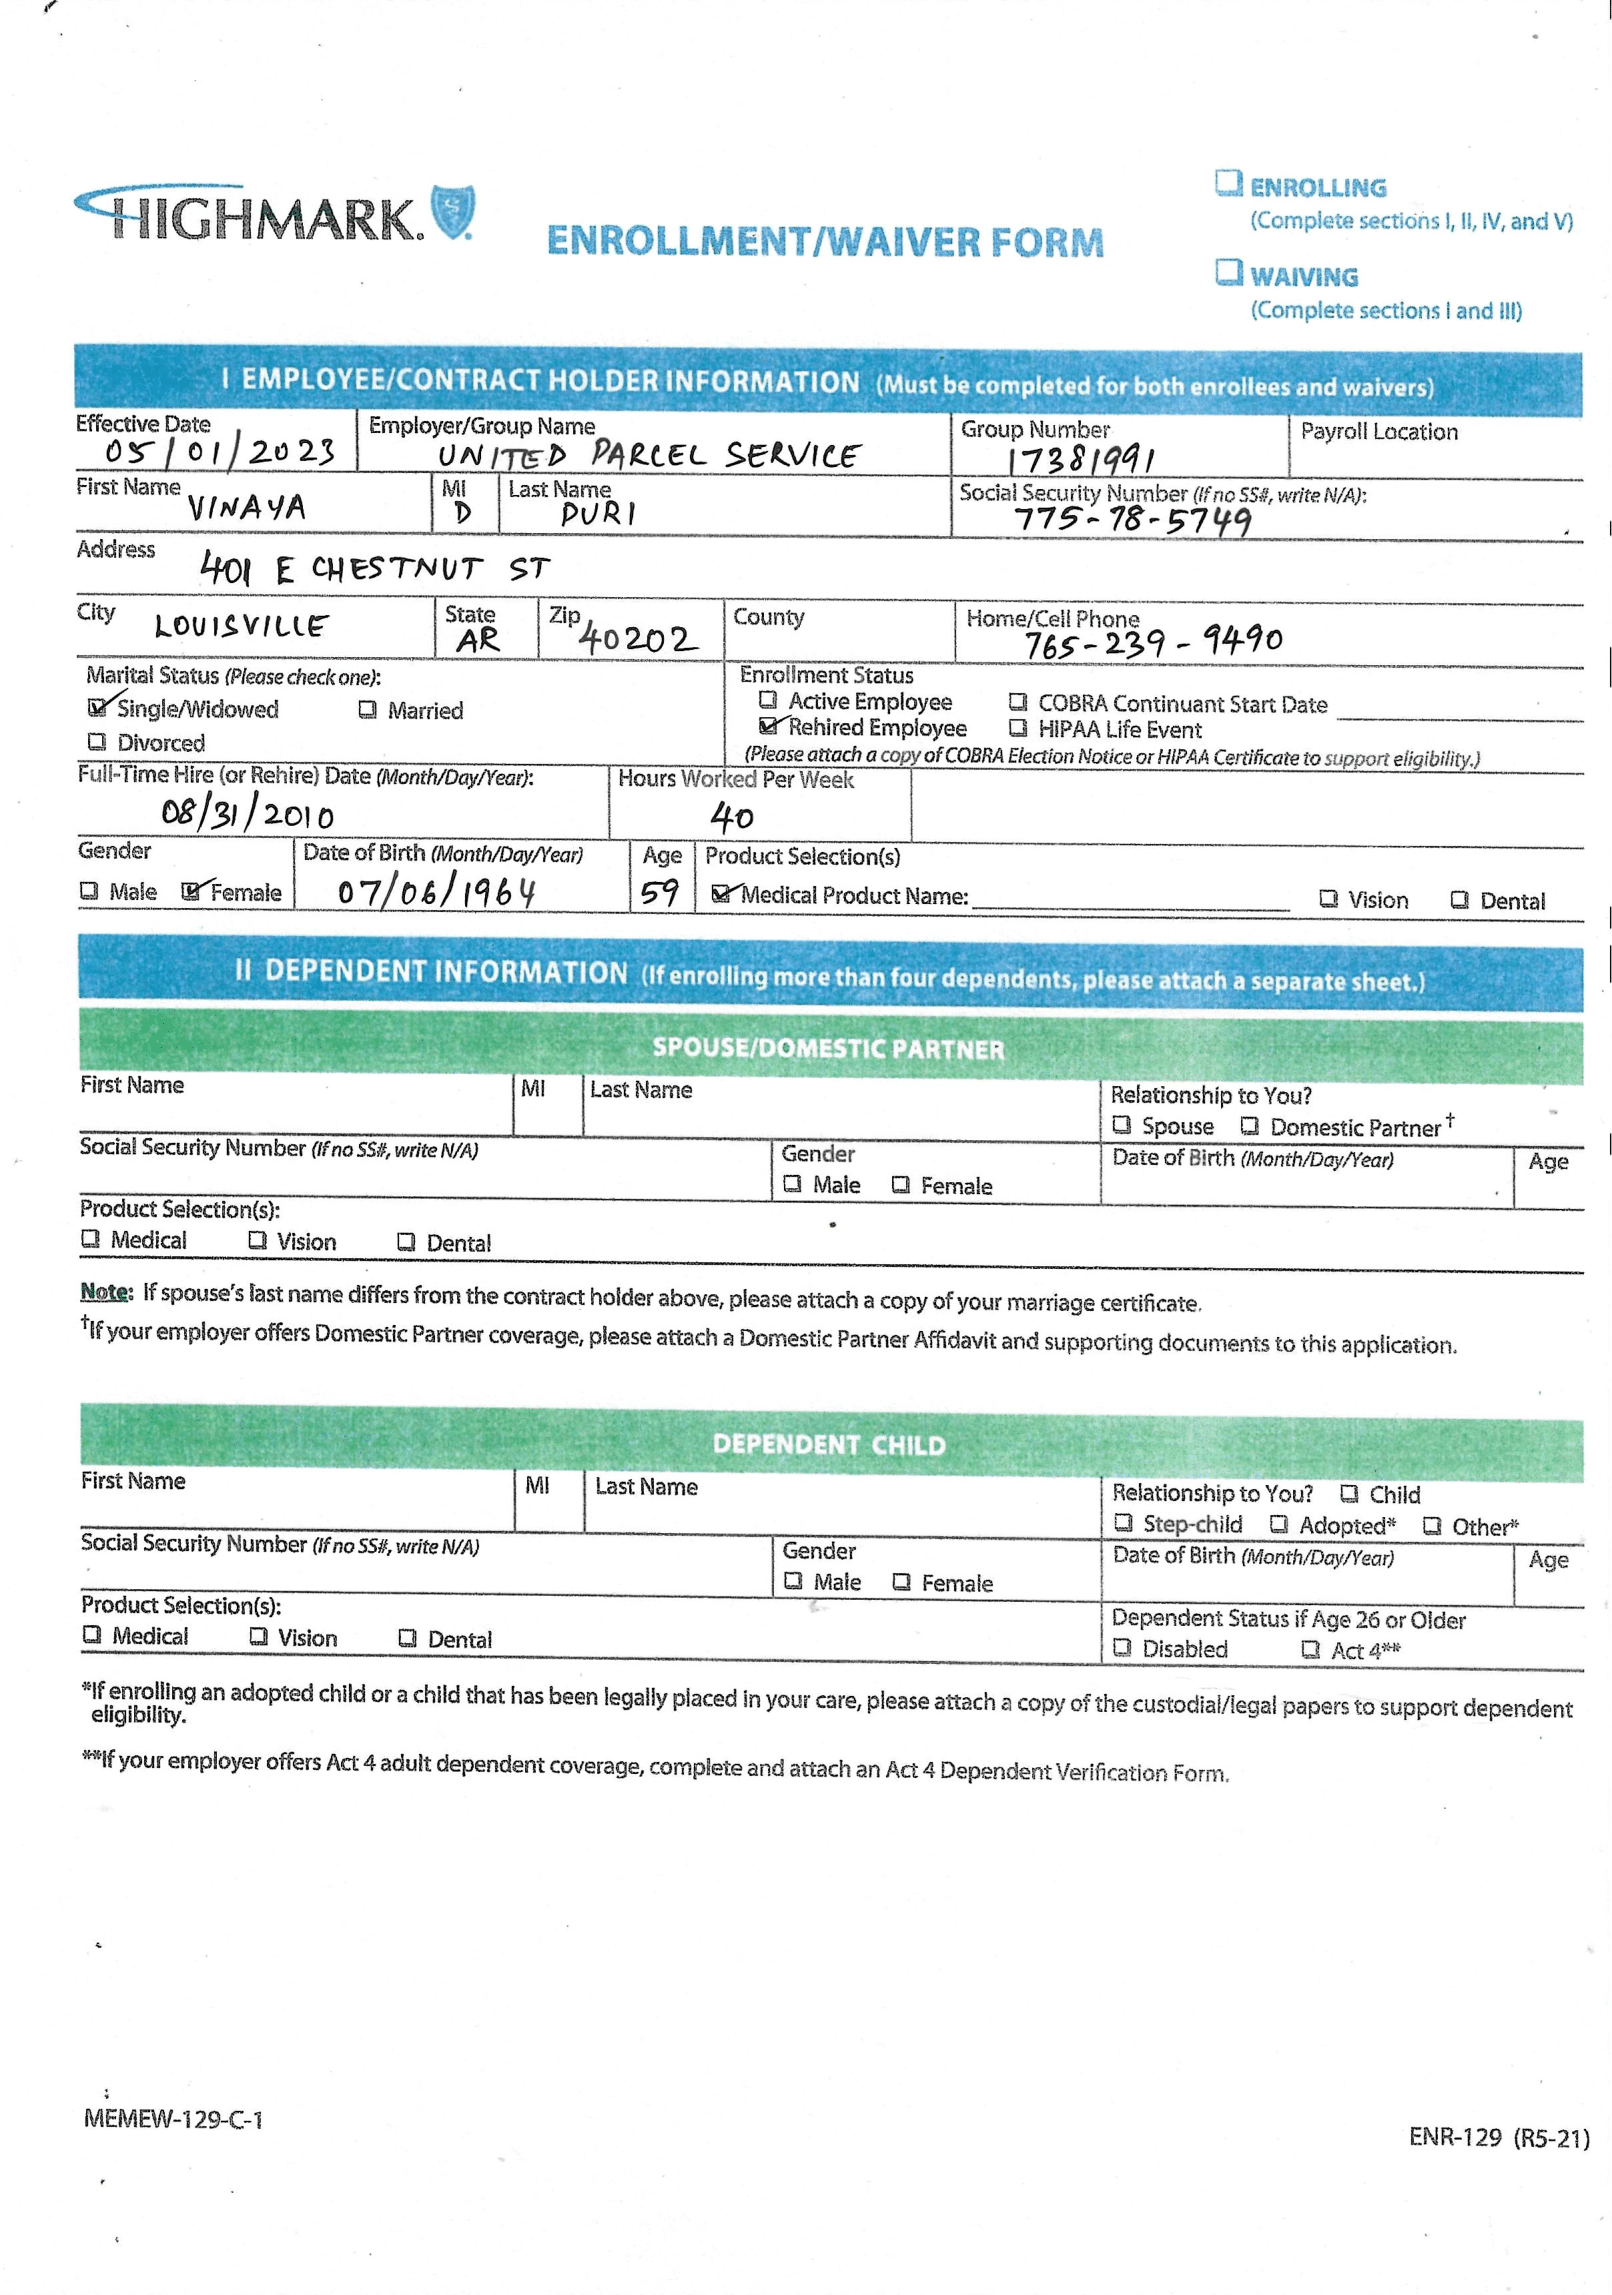 HIGHMARK.
ENROLLMENT/WAIVER FORM
ENROLLING
(Complete sections I, II, IV, and V)
WAIVING
(Complete sections I and III)
I EMPLOYEE/CONTRACT HOLDER INFORMATION (Must be completed for both enrollees and waivers)
Effective Date Employer/Group Name Group Number Payroll Location
05/01/2023 UNITED PARCEL SERVICE 17381991
First Name MI Last Name Social Security Number (If no SS#, write N/A):
VINAYA D PURI 775-78-5749
Address
401 E CHESTNUT ST
City State Zip County Home/Cell Phone
LOUISVILLE AR 40202 765-239-9490
Marital Status (Please check one): Enrollment Status
Single/Widowed Married Active Employee COBRA Continuant Start Date
Divorced Rehired Employee HIPAA Life Event
(Please attach a copy of COBRA Election Notice or HIPAA Certificate to support eligibility.)
Full-Time Hire (or Rehire) Date (Month/Day/Year): Hours Worked Per Week
08/31/2010 40
Gender Date of Birth (Month/Day/Year) Age Product Selection(s)
Male Female 07/06/1964 59 Medical Product Name: Vision Dental
II DEPENDENT INFORMATION (If enrolling more than four dependents, please attach a separate sheet.)
SPOUSE/DOMESTIC PARTNER
First Name MI Last Name Relationship to You?
Spouse Domestic Partner†
Social Security Number (If no SS#, write N/A) Gender Date of Birth (Month/Day/Year) Age
Male Female
Product Selection(s):
Medical Vision Dental
Note: If spouse's last name differs from the contract holder above, please attach a copy of your marriage certificate.
†If your employer offers Domestic Partner coverage, please attach a Domestic Partner Affidavit and supporting documents to this application.
DEPENDENT CHILD
First Name MI Last Name Relationship to You? Child
Step-child Adopted* Other*
Social Security Number (If no SS#, write N/A) Gender Date of Birth (Month/Day/Year) Age
Male Female
Product Selection(s): Dependent Status if Age 26 or Older
Medical Vision Dental Disabled Act 4**
*If enrolling an adopted child or a child that has been legally placed in your care, please attach a copy of the custodial/legal papers to support dependent
eligibility.
**If your employer offers Act 4 adult dependent coverage, complete and attach an Act 4 Dependent Verification Form.
MEMEW-129-C-1
ENR-129 (R5-21)